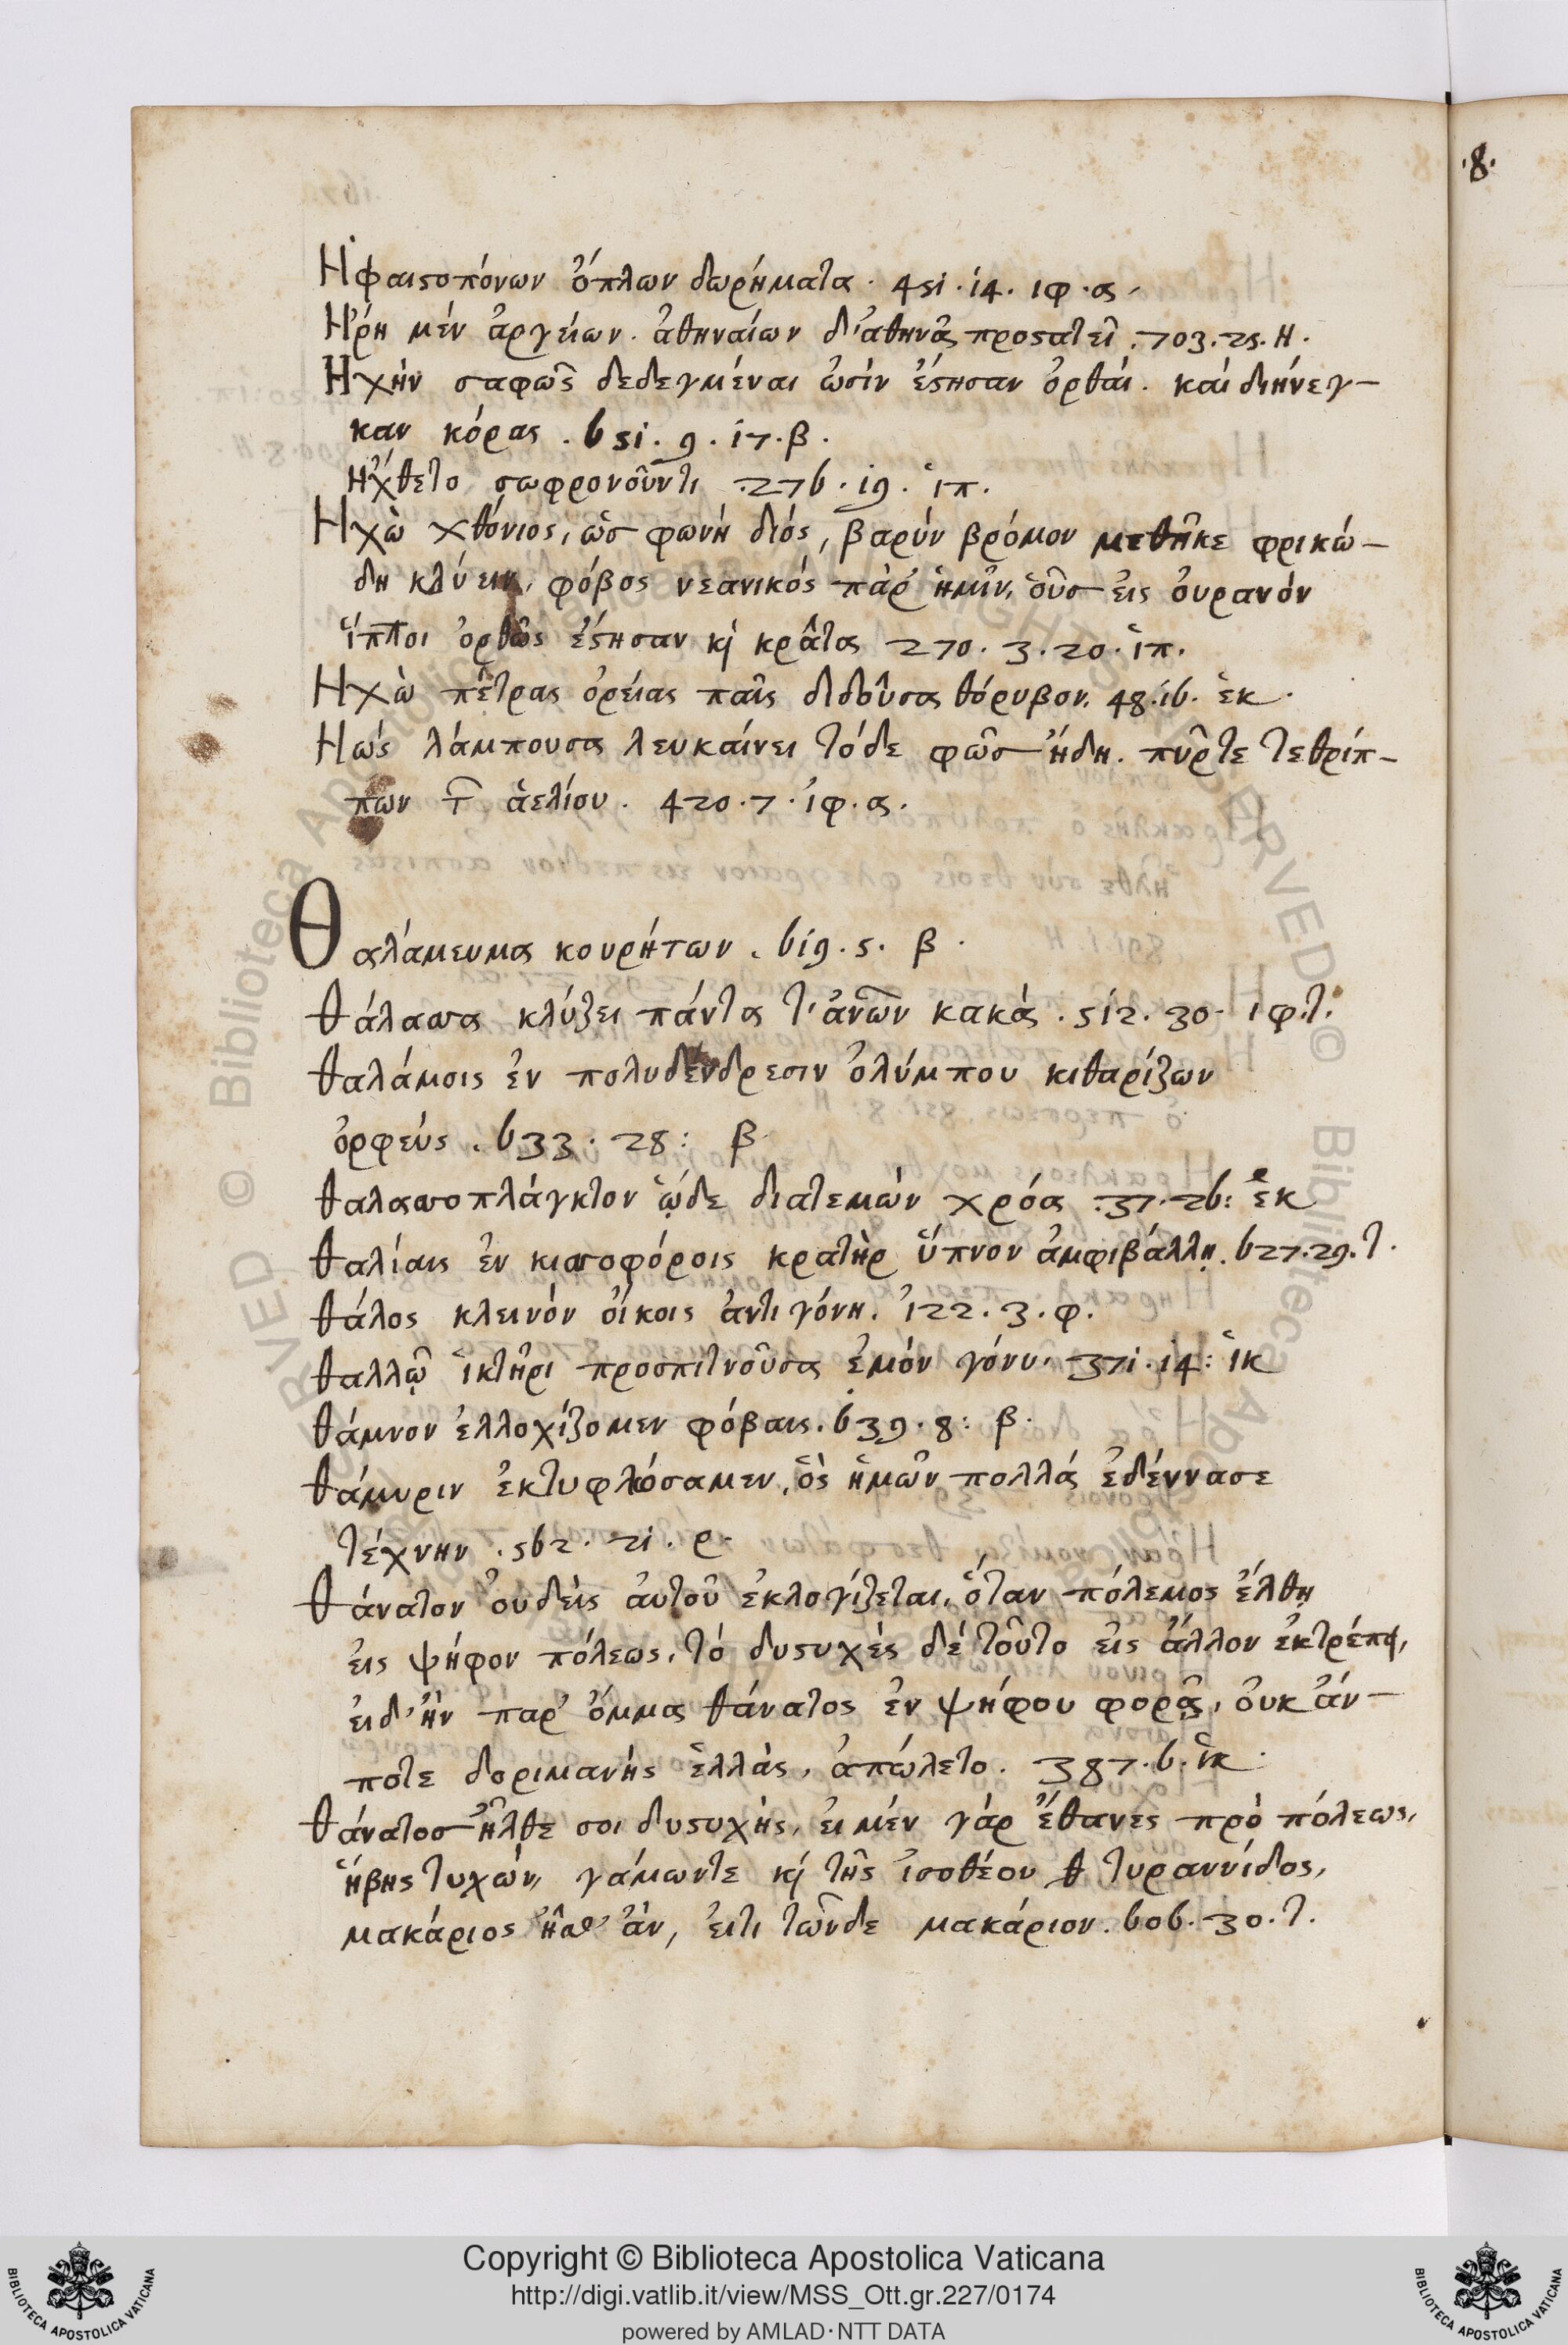 .8.
Ἡφαιϛοπόνων ὅπλων δωρήματα . 451 . 14 . ιφ . α .
Ἥρη μέν ἀργείων . ἀθηναίων δ' ἀθηνᾶ προϛατεῖ . 703 . 25 . Η .
Ηχὴν σαφῶς δεδεγμέναι ὠσίν ἔϛησαν ὀρθάι . καὶ διήνεγ-
καν κόρας . 651 . 9 . 17 . β .
Ηχθετο σωφρονοῦντι 276 . 19 . ἱπ .
Ηχὼ χθόνιος, ὡσ φωνὴ διός, βαρύν βρόμον μεθῆκε φρικώ-
δη κλύειν, φόβος νεανικός παρ' ἡμῖν, οὖσ εἰς ὀυρανόν
ἵπποι ὀρθῶς ἔϛησαν κὶ κρᾶτα 270 . 3 . 20 . ἱπ .
Ηχὼ πέτρας ὀρείας παῖς διδοῦσα θόρυβον . 48 . 16 . ἑκ .
Ηὡς λάμπουσα λευκαίνει τόδε φῶσ ἤδη . πῦρτε τεθρίπ-
πων τ̅ ἀελίου . 420 . 7 . ἰφ . α .
Θαλάμευμα κουρήτων . 619 . 5 . β .
θάλασσα κλύζει πάντα τ' ἀνῶν κακά . 512 . 30 . ιφ . τ .
θαλάμοις ἐν πολυδένδρεσιν ὀλύμπου κιθαρίζων
ὀρφεύς . 633 . 28 : β .
θαλασσοπλάγκτον ᾧδε διατεμών χρόα . 37 . 26 : ἑκ
θαλίαις ἐν κισσοφόροις κρατὴρ ὕπνον ἀμφιβάλλῃ . 627 . 29 . τ .
θάλος κλεινὸν οἴκοις ἀντιγόνη . 122 . 3 . φ .
θαλλῷ ἱκτῆρι προσπιτνοῦσα ἐμόν γόνυ . 371 . 14 : ἱκ
θάμνον ἐλλοχίζομεν φόβαις . 639 . 8 : β .
θάμυριν ἐκτυφλώσαμεν, ὃς ἡμῶν πολλά ἐδέννασε
τέχνην . 562 . 21 . ρ .
θάνατον οὐδεὶς ἀυτοῦ ἐκλογίζεται, ὅταν πόλεμος ἔλθῃ
ἐις ψήφον πόλεως, τὸ δυϛυχὲς δέ τοῦτο εἰς ἄλλον ἐκτρέπει,
ἐιδ' ἦν παρ' ὄμμα θάνατος ἐν ψήφου φορᾷ, ὀυκ ἄν-
ποτε δοριμανὴς ἑλλὰς, ἀπώλετο . 387 . 6 . ἱκ .
θάνατοσ ἦλθε σοι δυϛυχὴς, ἐι μέν γὰρ ἔθανες πρὸ πόλεως,
ἥβης τυχών, γάμωντε κὶ τῆς ἰσοθέου τυραννίδος,
μακάριος ἦσθ' ἄν, ἔιτι τῶνδε μακάριον . 606 . 30 . τ .
Copyright © Biblioteca Apostolica Vaticana
http://digi.vatlib.it/view/MSS_Ott.gr.227/0174
powered by AMLAD·NTT DATA